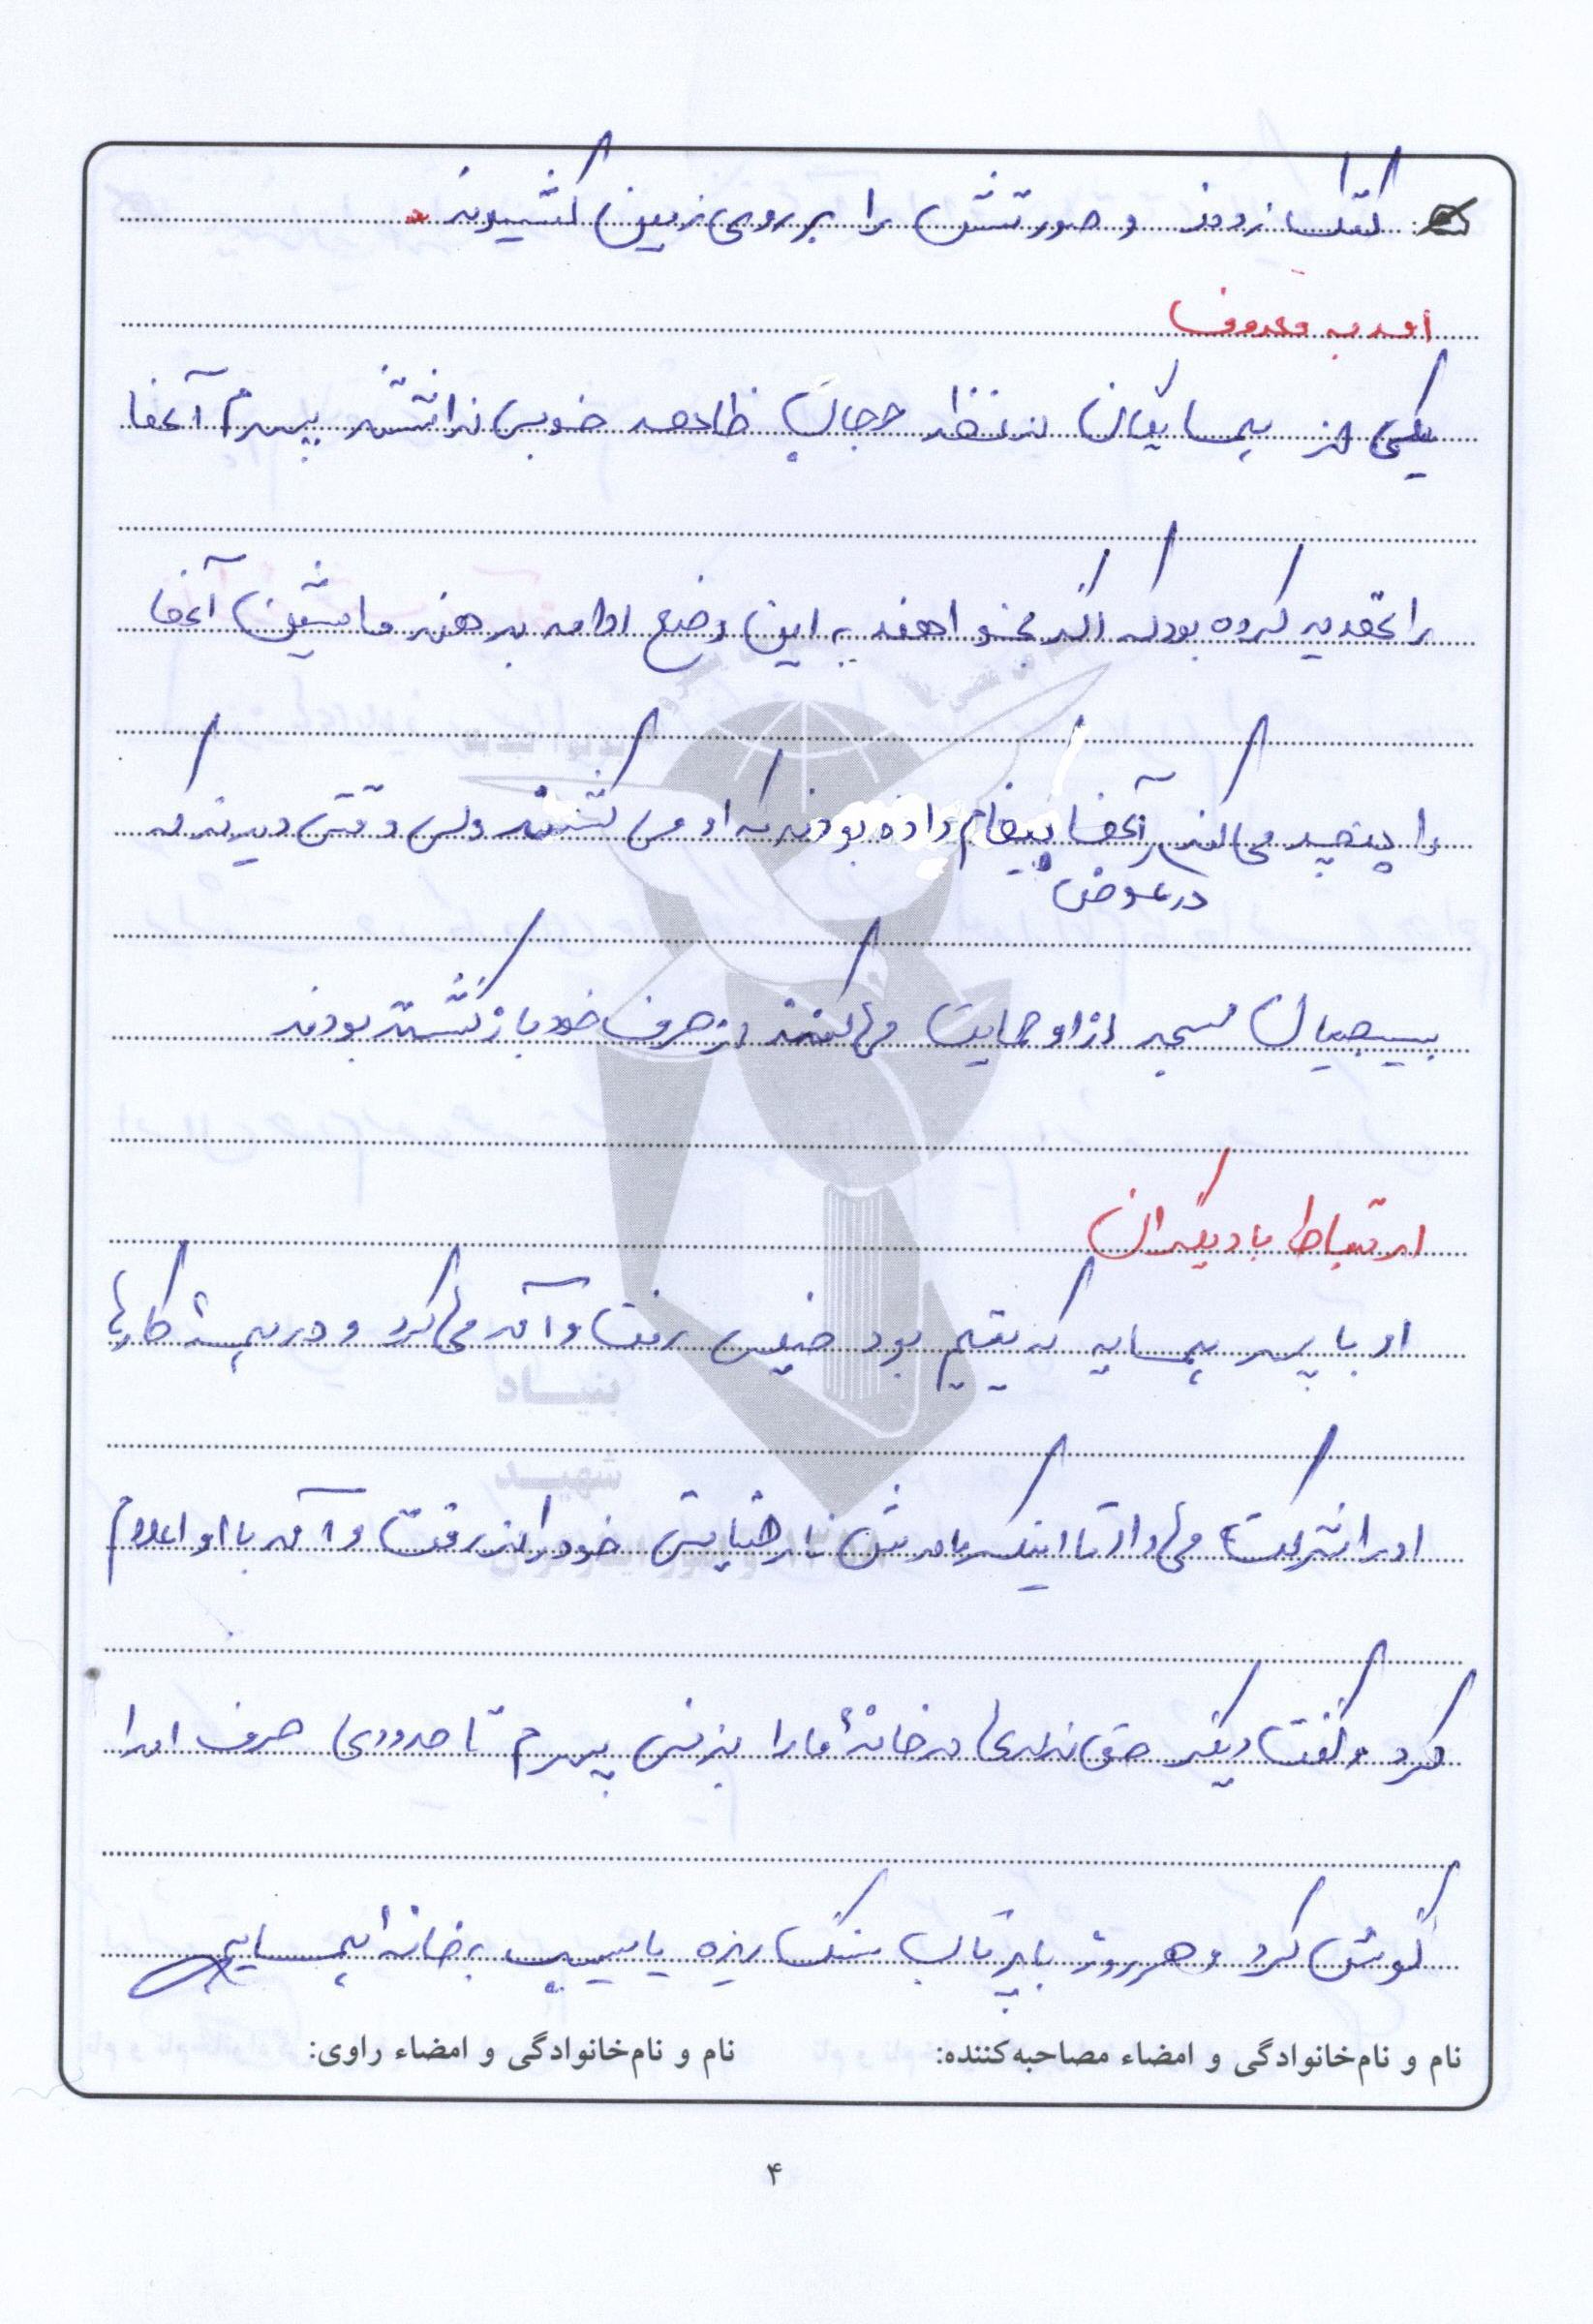 کتک زدند و صورتش را بر روی زمین کشیدند.
امر به معروف
یکی از همسایگان از نظر حجاب ظاهر خوبی نداشتند پسرم آنها
را تهدید کرده بود که اگر بخواهند به این وضع ادامه بدهند ماشین آنها
را پنچر می کنم آنها پیغام داده بودند که او را می کشند ولی وقتی دیدند که
در عوض
بسیجیان مسجد از او حمایت می کنند از حرف خود بازگشته بودند
ارتباط با دیگران
او با پسر همسایه که یتیم بود خیلی رفت و آمد می کرد و در همهٔ کارها
او را شرکت می داد تا اینکه مادرش نارضایتی خود را از رفت و آمد با او اعلام
کرد و گفت دیگر حق نداری در خانهٔ ما را بزنی پسرم تا حدودی حرف او را
گوش کرد و هر روز با پرتاب سنگ ریزه یا سیب به خانهٔ همسایه
نام و نام‌خانوادگی و امضاء مصاحبه‌کننده:
نام و نام‌خانوادگی و امضاء راوی:
۴